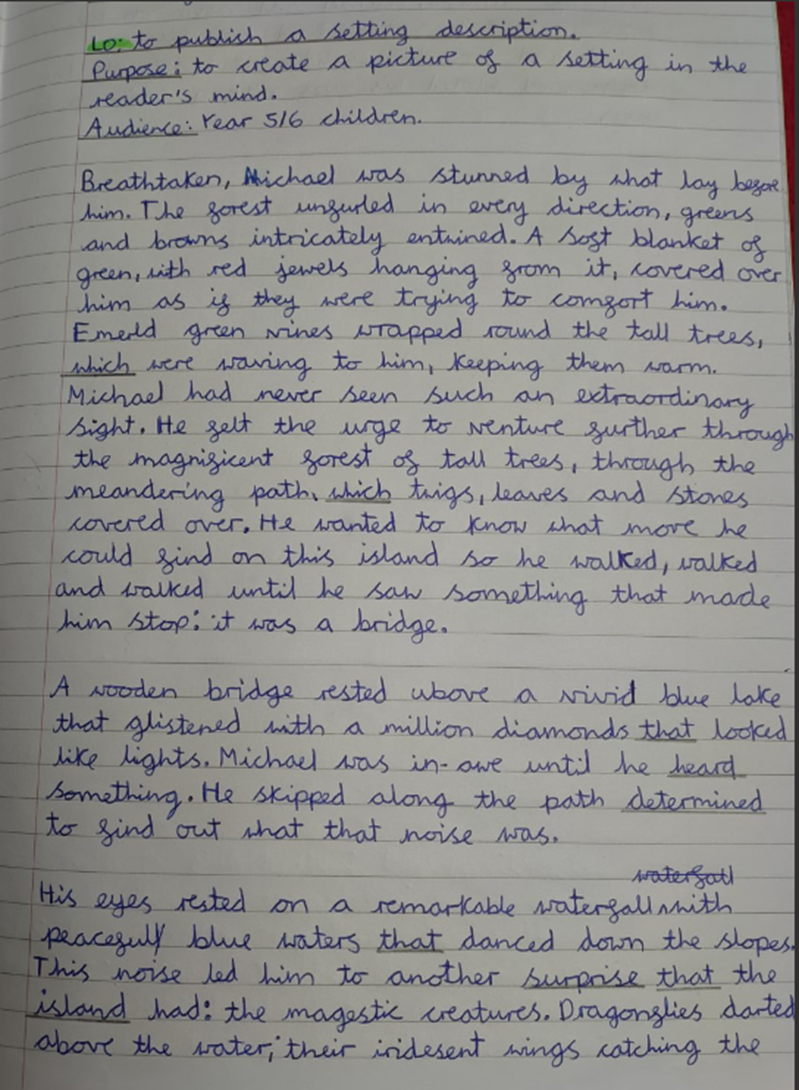 LO: to publish a setting description.
Purpose: to create a picture of a setting in the
reader's mind.
Audience: Year 5/6 children.
Breathtaken, Michael was stunned by what lay before
him. The forest unfurled in every direction, greens
and browns intricately entwined. A soft blanket of
green, with red jewels hanging from it, covered over
him as if they were trying to comfort him.
Emerld green vines wrapped round the tall trees,
which were waving to him, keeping them warm.
Michael had never seen such an extraordinary
sight. He felt the urge to venture further through
the magnificent forest of tall trees, through the
meandering path, which twigs, leaves and stones
covered over. He wanted to know what more he
could find on this island so he walked, walked
and walked until he saw something that made
him stop: it was a bridge.
A wooden bridge rested above a vivid blue lake
that glistened with a million diamonds that looked
like lights. Michael was in-awe until he heard
something. He skipped along the path determined
to find out what that noise was.
waterfall
His eyes rested on a remarkable waterfall with
peaceful blue waters that danced down the slopes.
This noise led him to another surprise that the
island had: the magestic creatures. Dragonflies darted
above the water; their iridesent wings catching the